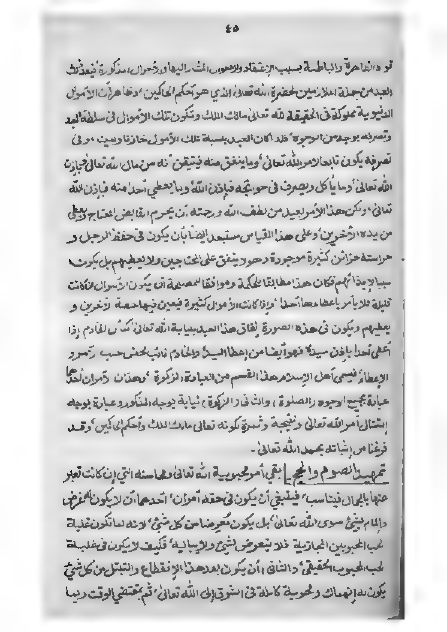 ٤٥
قوة الظاهرة والباطنة بسبب الإعتقاد والأحوال المشار إليها والأحوال المذكورة فيعد ذلك
العبد من جملة الملازمين لحضرة الله تعالى الذي هو أحكم الحاكمين، وظاهر أن الأموال
الدنيوية مملوكة في الحقيقة لله تعالى مالك الملك وتكون تلك الأموال في سلطة العبد
وتصرفه بوجه من الوجوه، فلذا كان العبد بنسبة تلك الأموال خازنا وأمينا، وفي
تصرفه يكون تابعا لأمر الله تعالى، وما ينفق منه فينفق أنه من مال الله تعالى
الله تعالى، وما يأكل ويصرف في حوائجه فبإذن الله وما يعطي أحدا منه فبإذن الله
تعالى، ولكن هذا الأمر بعيد من لطف الله ورحمته أن يحرم القابض المحتاج ويعطي
من يده الآخرين، وعلى هذا القياس مستبعد أيضا بأن يكون في حفظ الرجل و
حراسته خزائن كثيرة موجودة وهو لا ينفق على المحتاجين ولا يعطيهم بل يكون
سببا لإيذائهم فكان هذا مطابقا للحكمة وموافقا للمصلحة أن يكون الأموال إن كانت
قليلة فلا يأمر بإعطائها أحدا، وإذا كانت الأموال كثيرة فيعين فيها حصة لآخرين و
يعطيهم ويكون في هذه الصورة إنفاق هذا العبد بنيابة الله تعالى كما أن الخادم إذا
أعطى أحدا بإذن سيده فهو أيضا من إعطاء السيد والخادم نائب محض حسب رسم و
الإعطاء، فيسمى أهل الإسلام هذا القسم من العبادة الزكوة، وهذان الأمران أحدهما
عبادة بجميع الوجوه والصلوة، والثاني والزكوة، نيابة بوجه المذكور وعبادة بوجه
إمتثال أمر الله تعالى ونتيجة وثمرة كونه تعالى مالك الملك وأحكم الحاكمين، وقد
فرغنا من إثباته بحمد الله تعالى.
تمهيد الصوم والحج | بقي أمر محبوبية الله تعالى ومحاسنه التي إن كانت تعبر
عنها بالجمال فيناسب، فينبغي أن يكون في حقه أمران، أحدهما أن لا يكون الغرض
والمرام شيئ سوى الله تعالى، بل يكون معرضا من كل شيئ، لأنه لما تكون غلبة
لحب المحبوبين المجازية فلا يتعرض لشيئ ولا يباليه، فكيف لا يكون في غلبة
لحب المحبوب الحقيقي، والثاني أن يكون بعد هذا الإنقطاع والتبتل من كل شيئ
يكون له إنهماك ومحوية كاملة في الشوق إلى الله تعالى، ثم بمقتضى الوقت